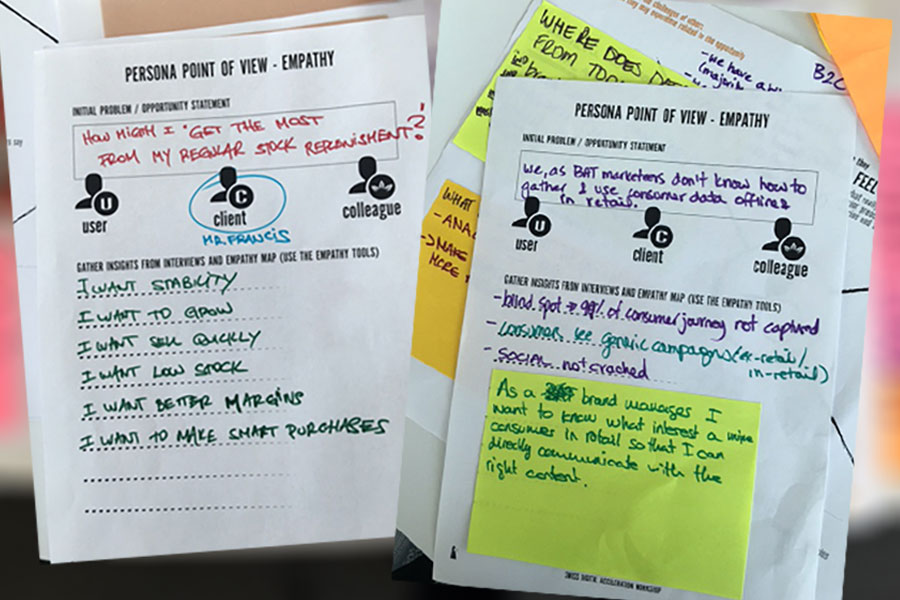 PERSONA POINT OF VIEW - EMPATHY
INITIAL PROBLEM / OPPORTUNITY STATEMENT
HOW MIGHT I "GET THE MOST
FROM MY REGULAR STOCK REPLENISHMENT"?
U
C
user
client
colleague
MR. FRANCIS
GATHER INSIGHTS FROM INTERVIEWS AND EMPATHY MAP (USE THE EMPATHY TOOLS)
I WANT STABILITY
I WANT TO GROW
I WANT SELL QUICKLY
I WANT LOW STOCK
I WANT BETTER MARGINS
I WANT TO MAKE SMART PURCHASES
WHERE DOES
FROM
- we have a
(majority
B2C
WHAT
- ANA
-> MAKE
MORE
FEEL
PERSONA POINT OF VIEW - EMPATHY
INITIAL PROBLEM / OPPORTUNITY STATEMENT
we, as BAT marketeers don't know how to
gather & use consumer data offline
in retail.
U
C
user
client
colleague
GATHER INSIGHTS FROM INTERVIEWS AND EMPATHY MAP (USE THE EMPATHY TOOLS)
- blind spot 99% of consumer journey not captured
- consumers see generic campaigns (ex-retail/
in-retail)
- SOCIAL not cracked
As a brand manager I
want to know what interest a unique
consumer in retail so that I can
directly communicate with the
right content.
SWISS DIGITAL ACCELERATION WORKSHOP